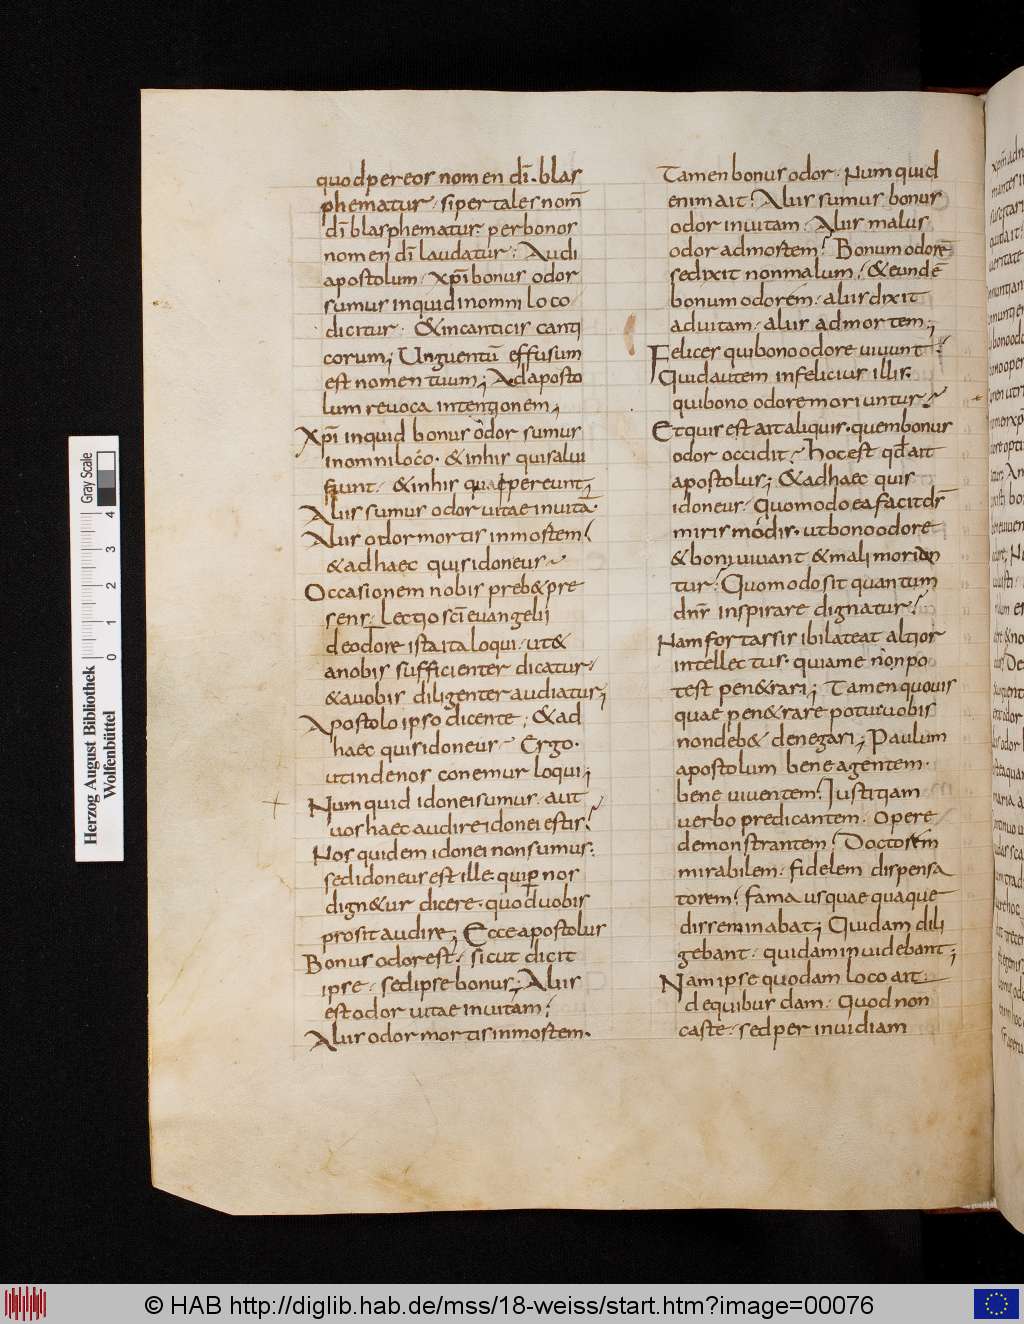 quod per eos nomen dī. blas
phematur. si per tales nom̄
dī blasphematur. per bonos
nomen dī laudatur. Audi
apostolum. xp̄i bonus odor
sumus inquid in omni loco
dicitur. & in canticis canti
corum; Unguentū effusum
est nomen tuum; Ad aposto
lum revoca intentionem;
Xp̄i inquid bonus odor sumus
in omni loco. & in his qui salui
fiunt. & in his qui pereunt;
Aliis sumus odor uitae in uitā.
Aliis odor mortis in mortem?
& ad haec quis idoneus?
Occasionem nobis preb& pre
sens. Lectio sc̄i euangelii
de odore ista ita loqui. ut &
a nobis sufficienter dicatur.
& a uobis diligenter audiatur;
Apostolo ipso dicente; & ad
haec quis idoneus? Ergo.
ut inde nos conemur loqui;
Num quid idonei sumus. aut
uos haec audire idonei estis?
Nos quidem idonei non sumus.
sed idoneus est ille. qui p̱ nos
dign&ur dicere. quod uobis
prosit audire; Ecce apostolus
Bonus odor est. sicut dicit
ipse. sed ipse bonus; Aliis
est odor uitae in uitam?
Aliis odor mortis in mortem.
Tamen bonus odor. Num quid
enim ait? Aliis sumus bonus
odor in uitam. Aliis malus
odor ad mortem? Bonum odorē
se dixit non malum? & eundē
bonum odorem. aliis dixit
ad uitam. aliis ad mortem;
Felices qui bono odore uiuunt?
Quid autem infelicius illis.
qui bono odore moriuntur?
Et quis est ait aliquis. quem bonus
odor occidit? hoc est qđ ait
apostolus; & ad haec quis
idoneus. Quomodo ea facit dr̄
miris modis. ut bono odore
& boni uiuant & mali morian
tur? Quomodo sit quantum
dnr̄ inspirare dignatur?
Nam fortassis ibi lateat altior
intellectus. qui a me non po
test pen&rari; Tamen quo uis
quae pen&rare potui uobis
non deb& denegari; Paulum
apostolum bene agentem.
bene uiuentem? Iustitiam
uerbo predicantem. Opere
demonstrantem? Doctorem
mirabilem. fidelem dispensa
torem? fama usquae quaque
disseminabat; Quidam dili
gebant. quidam inuidebant;
Nam ipse quodam loco ait.
de quibusdam. Quod non
caste. sed per inuidiam
Herzog August Bibliothek
Wolfenbüttel
0 1 2 3 4
Gray Scale
© HAB http://diglib.hab.de/mss/18-weiss/start.htm?image=00076